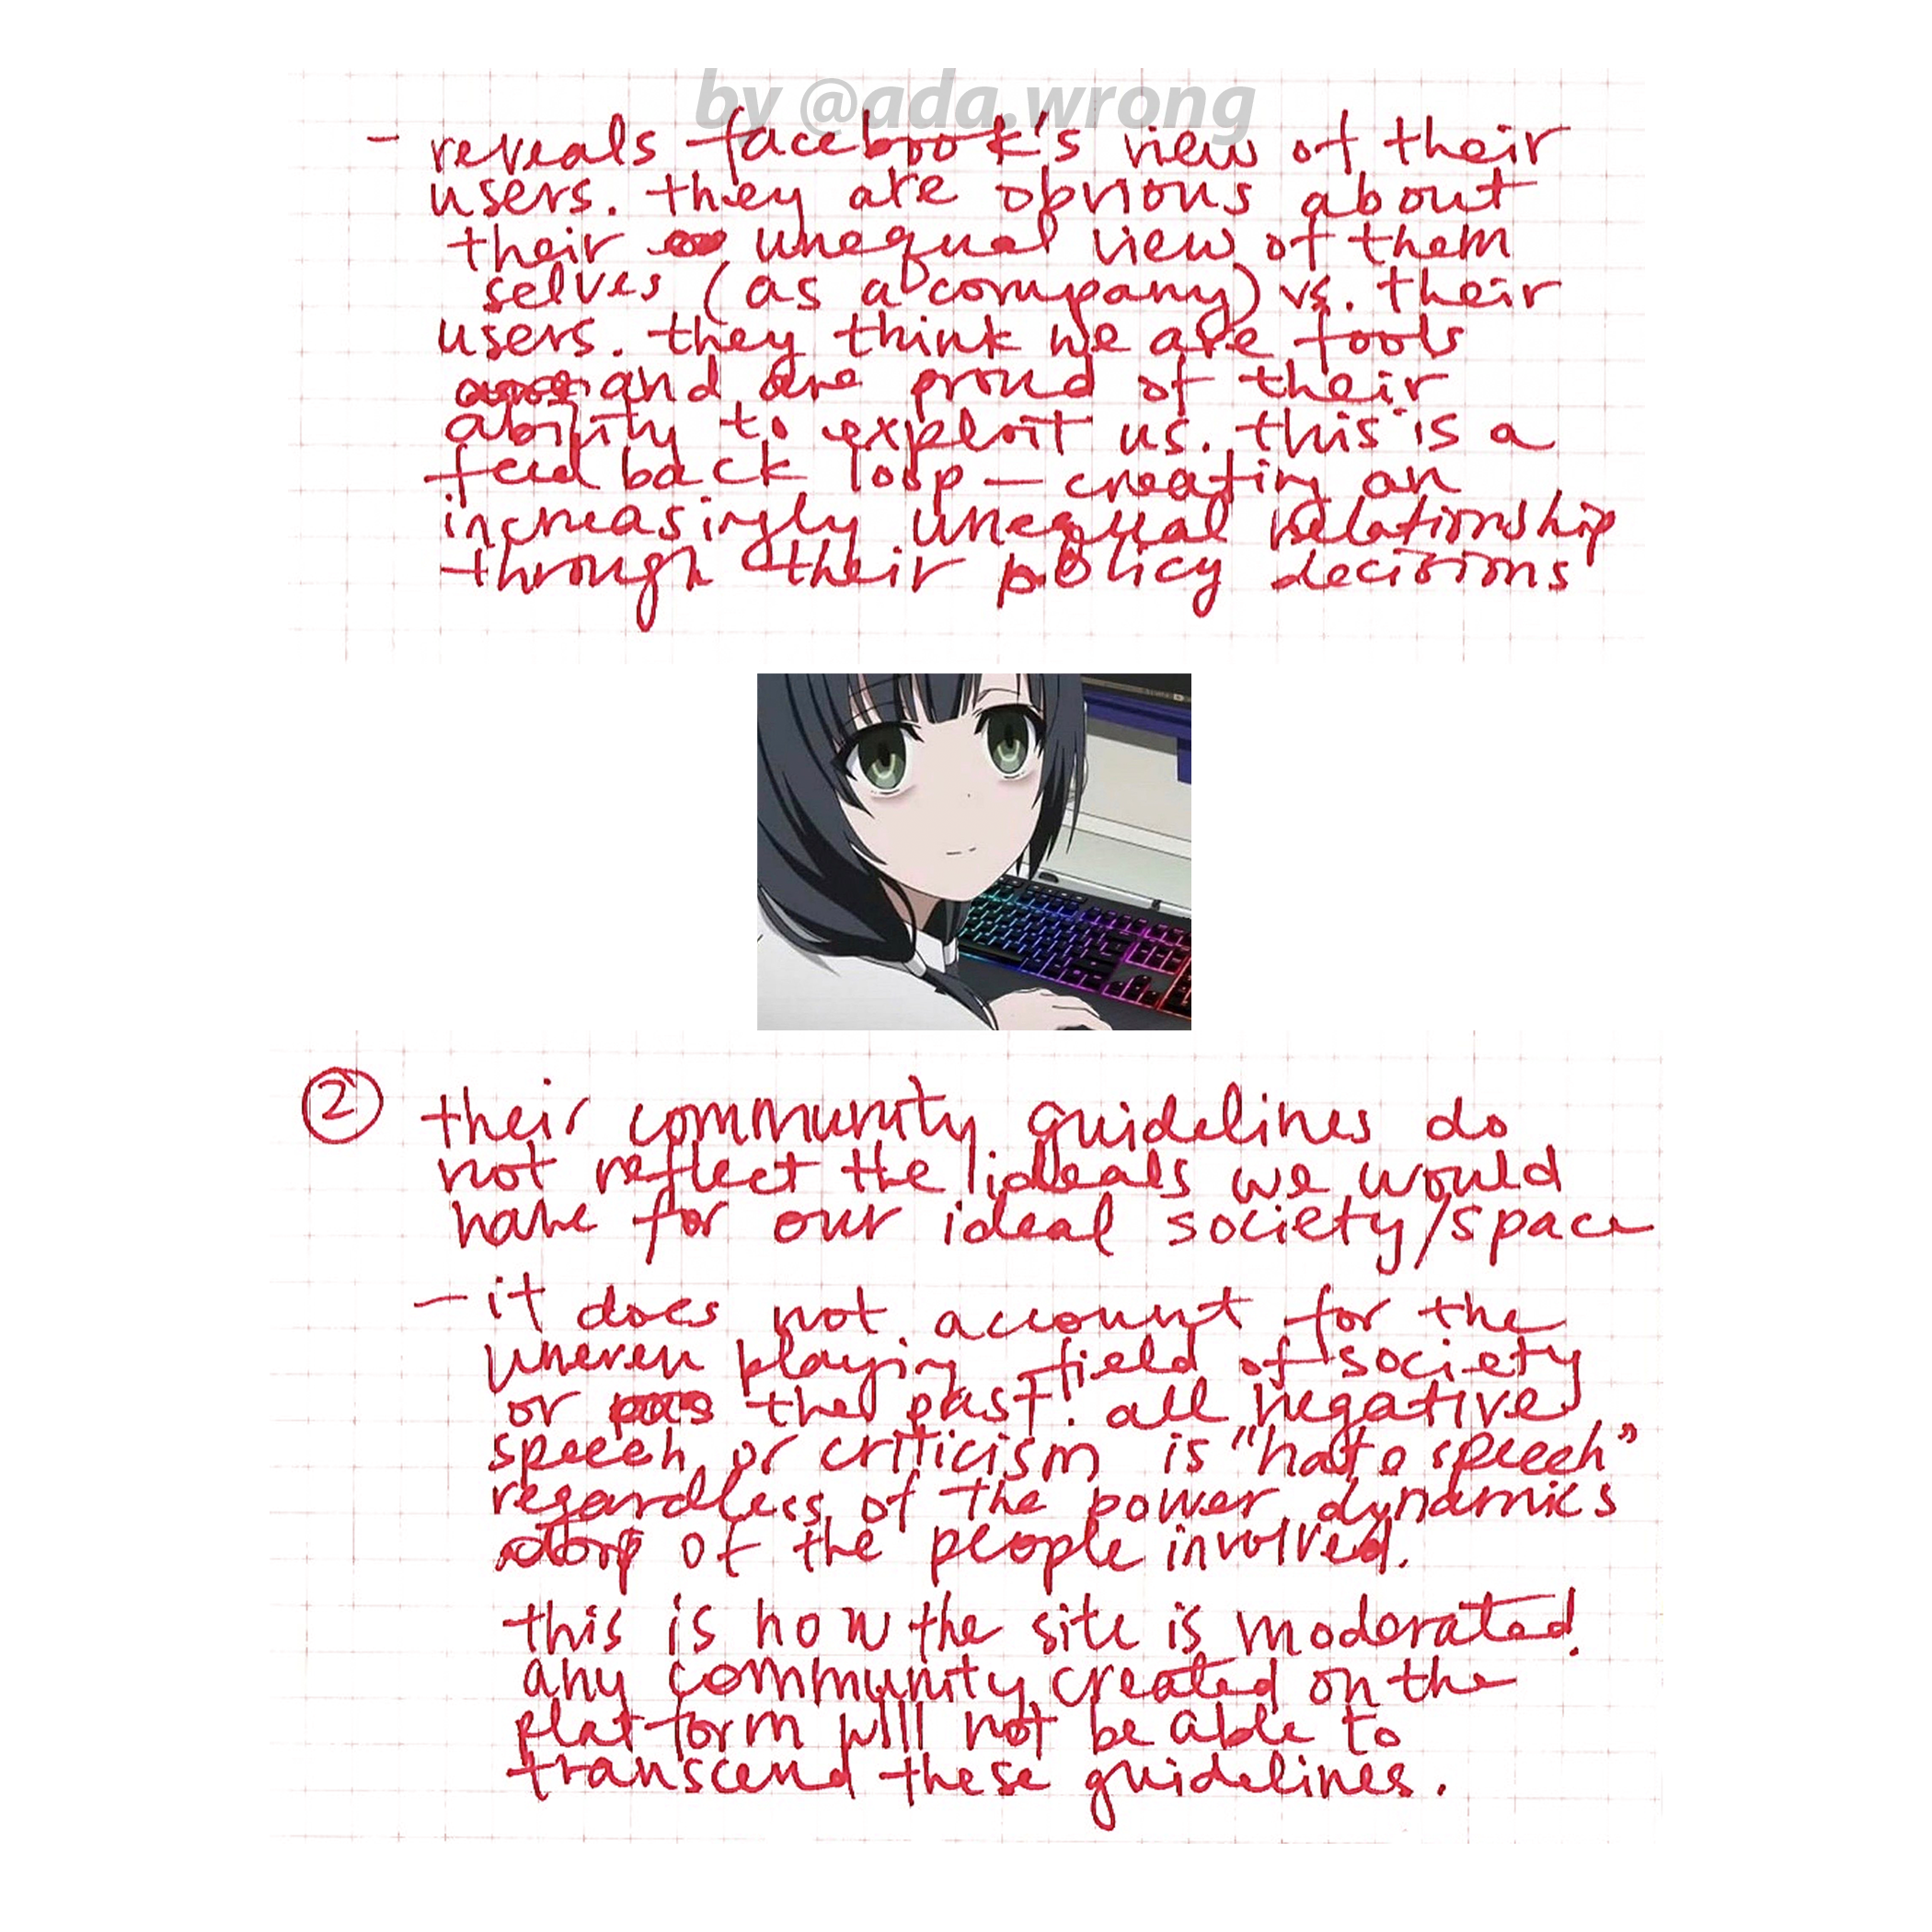 by @ada.wrong
- reveals facebook's view of their
users. they are obvious about
their unequal view of them
selves (as a company) vs. their
users. they think we are fools
and are proud of their
ability to exploit us. this is a
feed back loop — creating an
increasingly unequal relationship
through their policy decisions
② their community guidelines do
not reflect the ideals we would
have for our ideal society/space
- it does not account for the
uneven playing field of society
or the past. all negative
speech or criticism is "hate speech"
regardless of the power dynamics
of the people involved.
this is how the site is moderated.
any community created on the
platform will not be able to
transcend these guidelines.